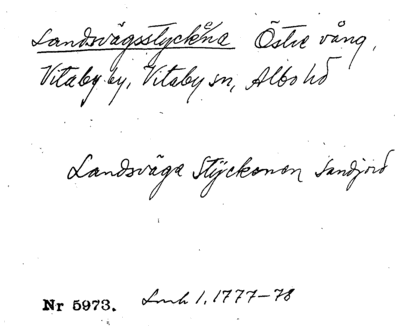 Landsvägsstyckena Östre vång,
Vitaby by, Vitaby sn, Albo hd
Landsväga Styckonon Sandjord
Nr 5973. Lmh 1, 1777-78